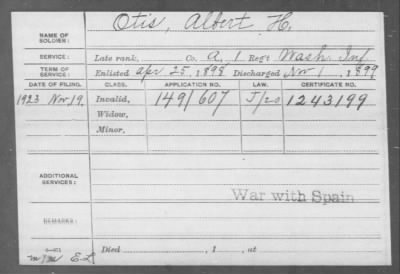 NAME OF SOLDIER: Otis, Albert H.
SERVICE: Late rank, Co. A, 1 Reg't Wash. Inf.
TERM OF SERVICE: Enlisted Apr 25, 1898 Discharged Nov 1, 1899
DATE OF FILING. CLASS. APPLICATION NO. LAW. CERTIFICATE NO.
1923 Nov 19. Invalid, 1491607 J/20 1243199
Widow,
Minor,
ADDITIONAL SERVICES:
War with Spain
REMARKS:
Died , 1 , at